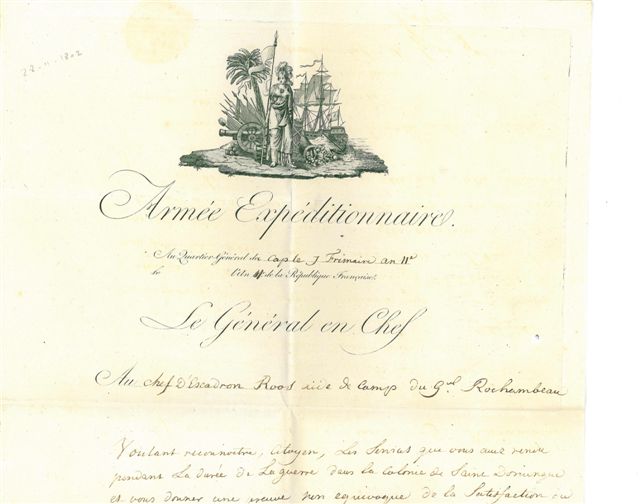 22-11-1802
Armée Expéditionnaire.
Au Quartier-Général du Cap le J Frimaire an 11e
le l'An de la République Française.
Le Général en Chef
Au chef D'Escadron Roos aide de Camp du Gal Rochambeau
Voulant reconnoitre, Citoyen, Les que vous avez rendu
pendant La durée de La guerre dans la Colonie de Saine Domingue
et vous donner une preuve non équivoque de la Satisfaction du